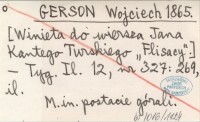 GERSON Wojciech 1865.
[Winieta do wiersza Jana
Kantego Turskiego „Flisacy”.]
— Tyg. Il. 12, nr 327: 269,
il.
M.in. postacie górali.